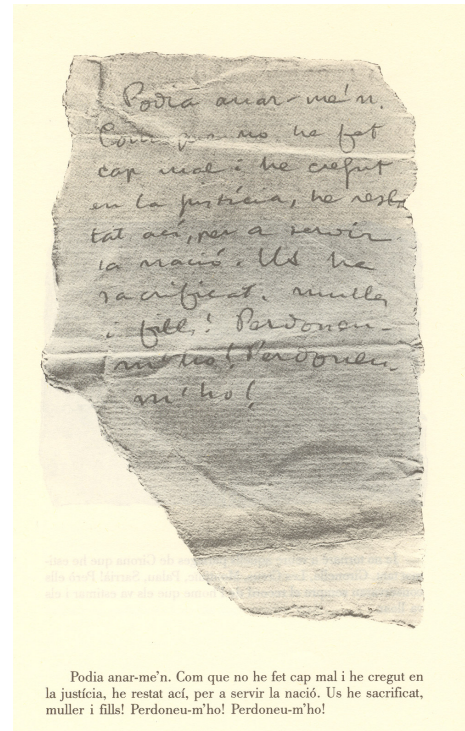 Podia anar-me'n.
Com que no he fet
cap mal i he cregut
en la justícia, he res-
tat ací, per a servir
la nació. Us he
sacrificat, muller
i fills! Perdoneu-
m'ho! Perdoneu-
m'ho!
Podia anar-me'n. Com que no he fet cap mal i he cregut en
la justícia, he restat ací, per a servir la nació. Us he sacrificat,
muller i fills! Perdoneu-m'ho! Perdoneu-m'ho!